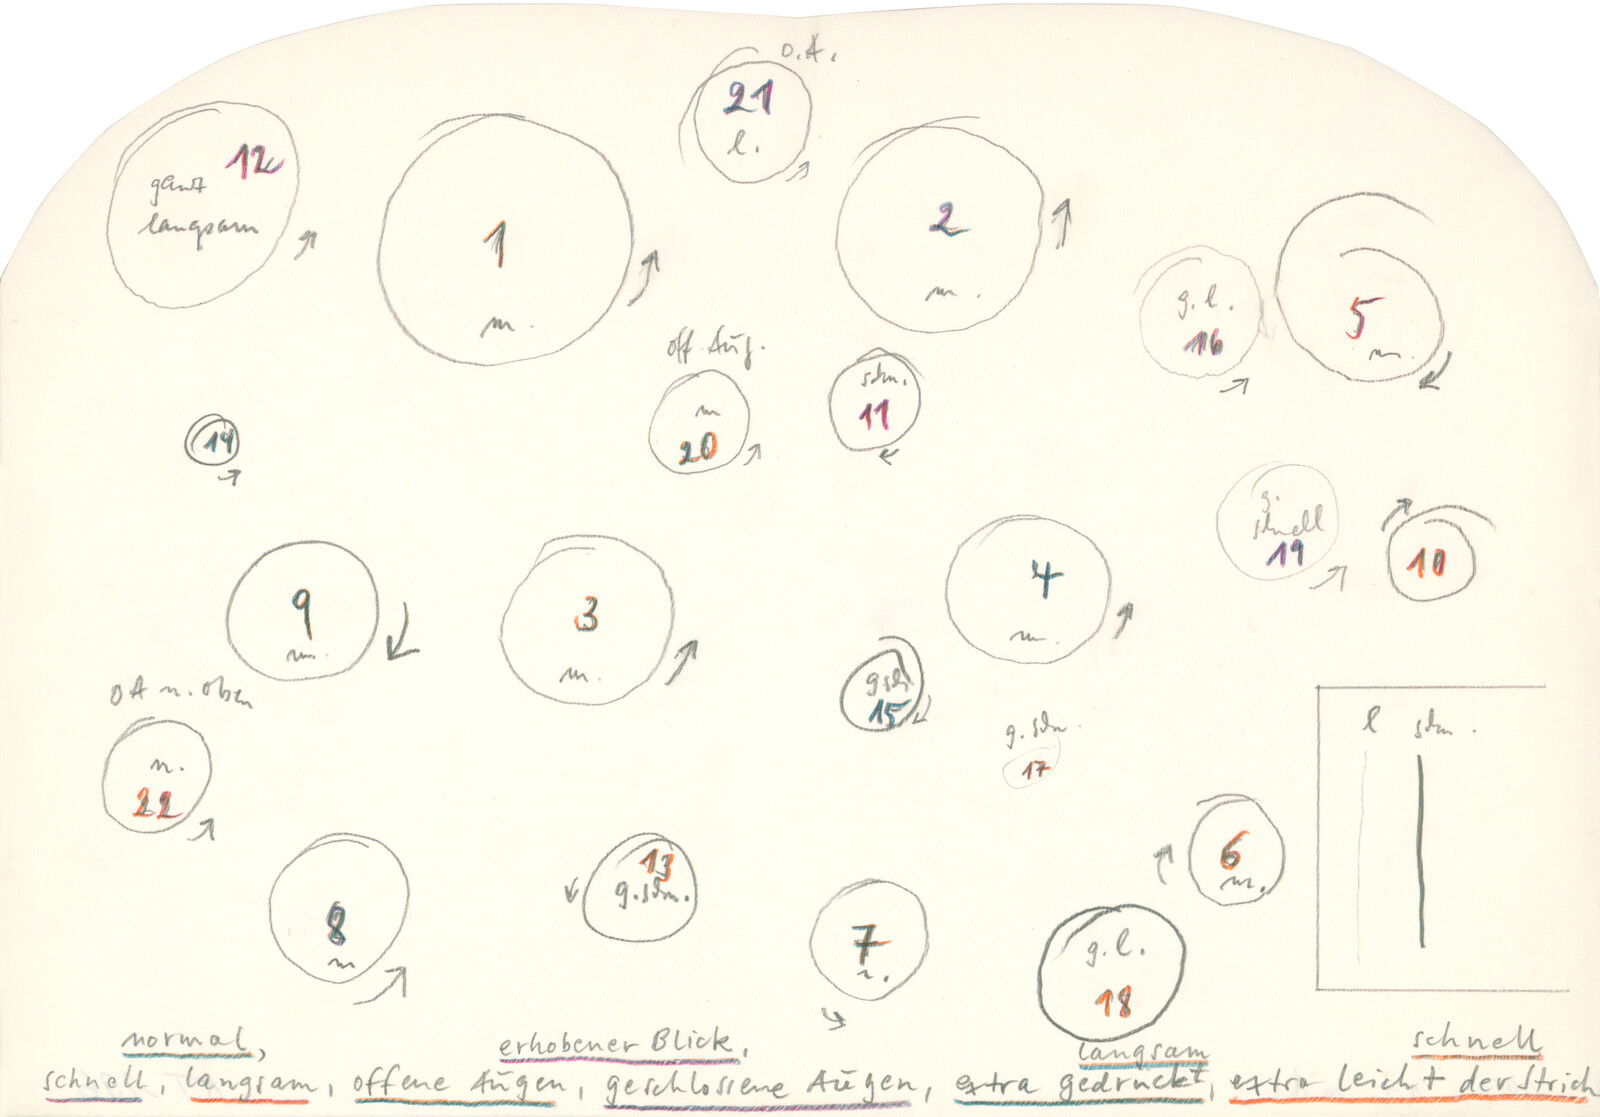 o.A.
21
l.
12
ganz
langsam
1
m.
2
m.
g.l.
16
5
m.
off. Aug.
m
20
schn.
11
14
g.
schnell
19
10
9
m.
3
m.
4
m.
gsch
15
o A n. oben
n.
22
g. schn.
17
l schn.
6
m.
13
g.schn.
8
m
7
n.
g.l.
18
normal, erhobener Blick, langsam schnell
schnell, langsam, offene Augen, geschlossene Augen, extra gedrückt, extra leicht der Strich